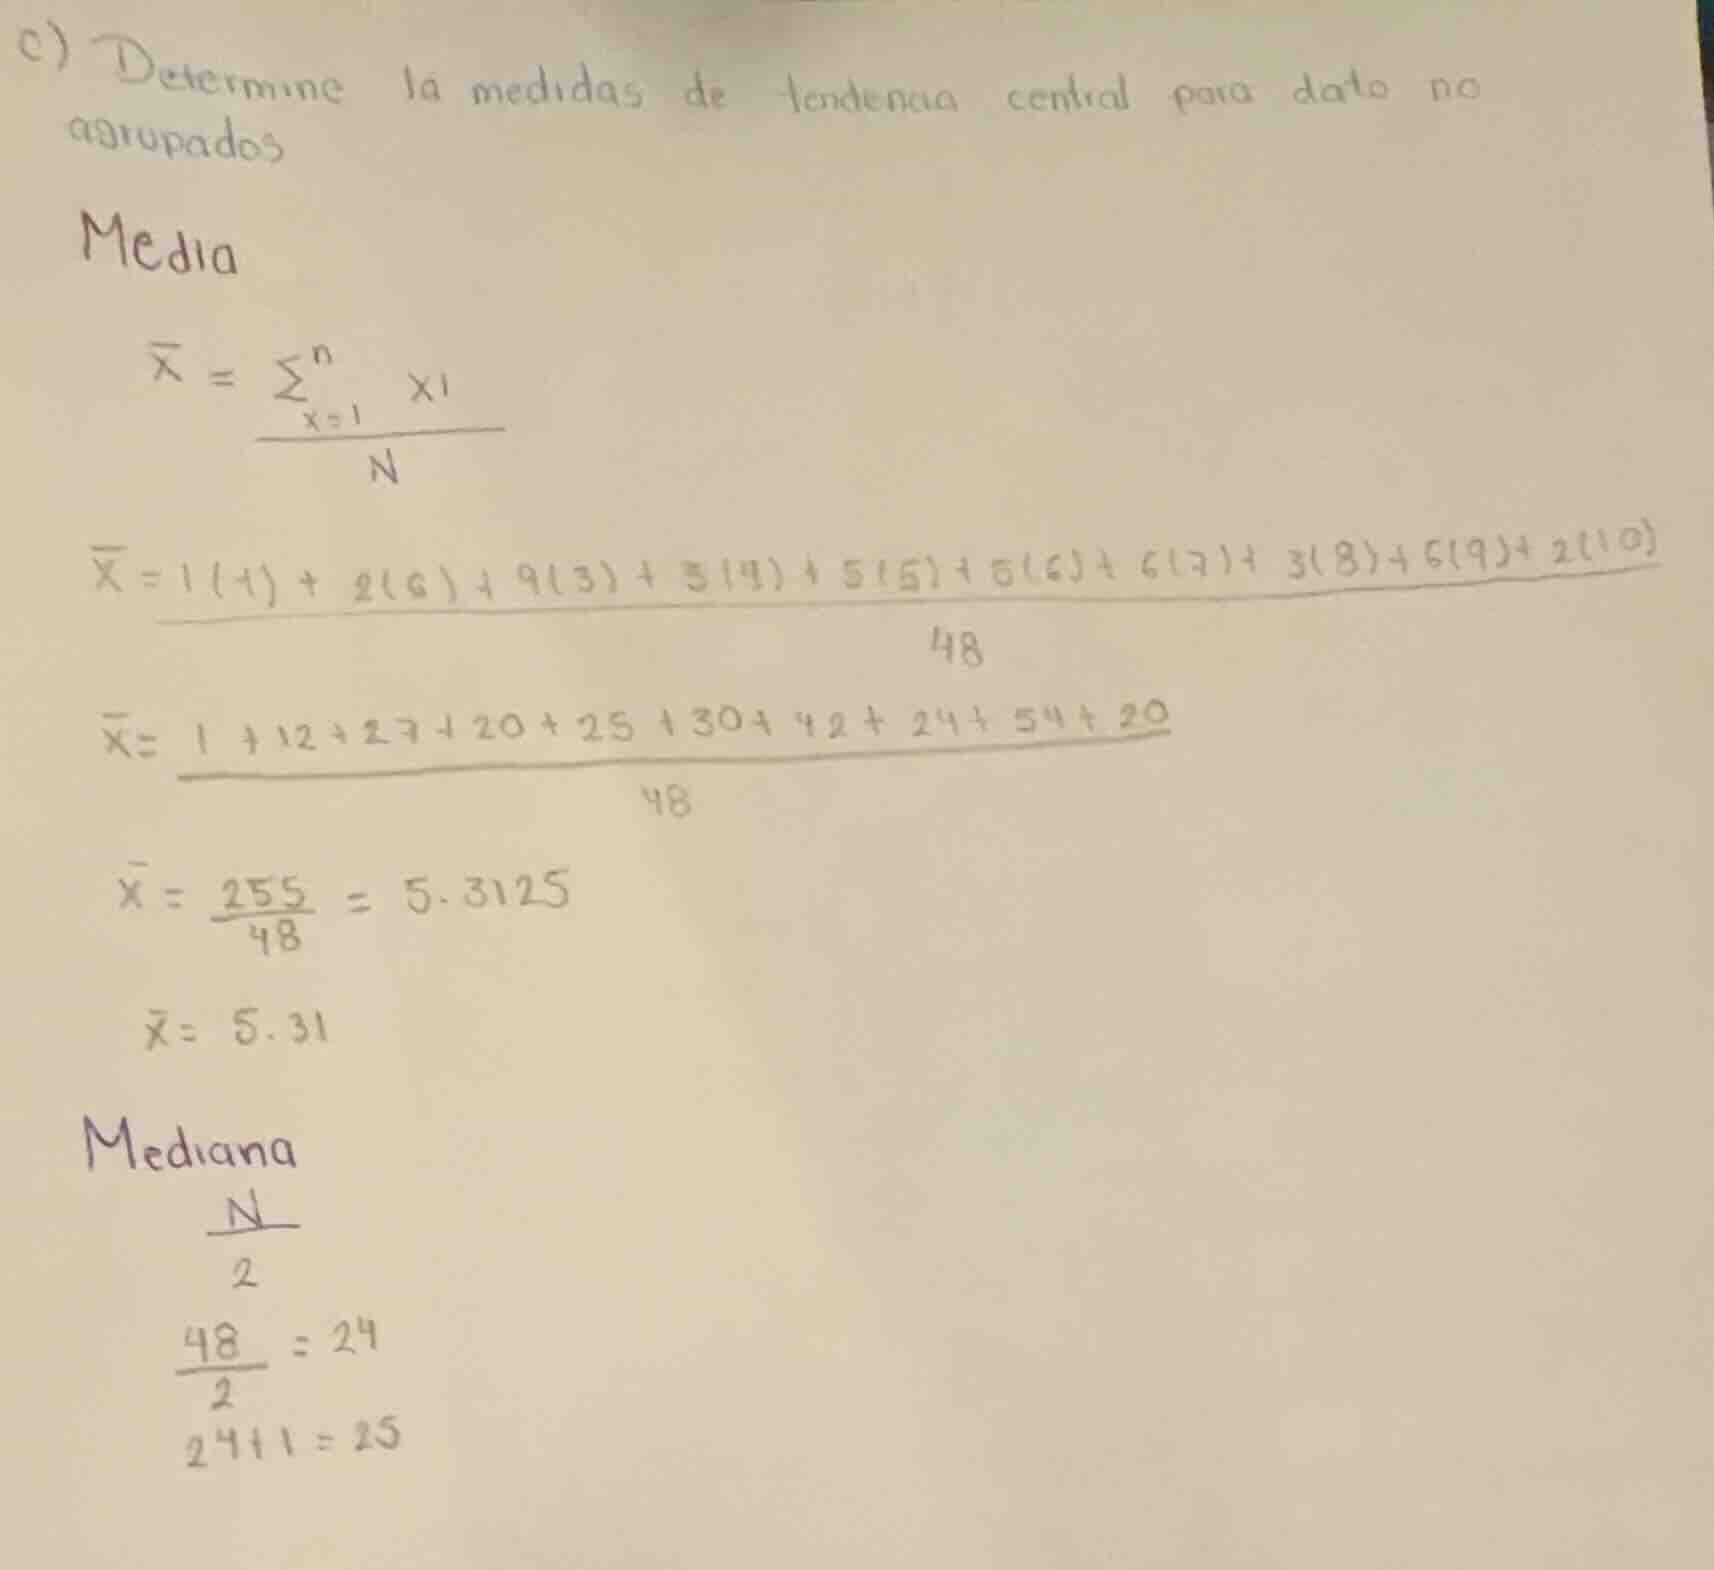 c) Determine la medidas de tendencia central para dato no
agrupados
Media
x̄ = Σⁿ x=1 xi
N
x̄ = 1(1) + 2(6) + 9(3) + 5(4) + 5(5) + 5(6) + 6(7) + 3(8) + 6(9) + 2(10)
48
x̄ = 1 + 12 + 27 + 20 + 25 + 30 + 42 + 24 + 54 + 20
48
x̄ = 255/48 = 5.3125
x̄ = 5.31
Mediana
N
2
48/2 = 24
24+1 = 25